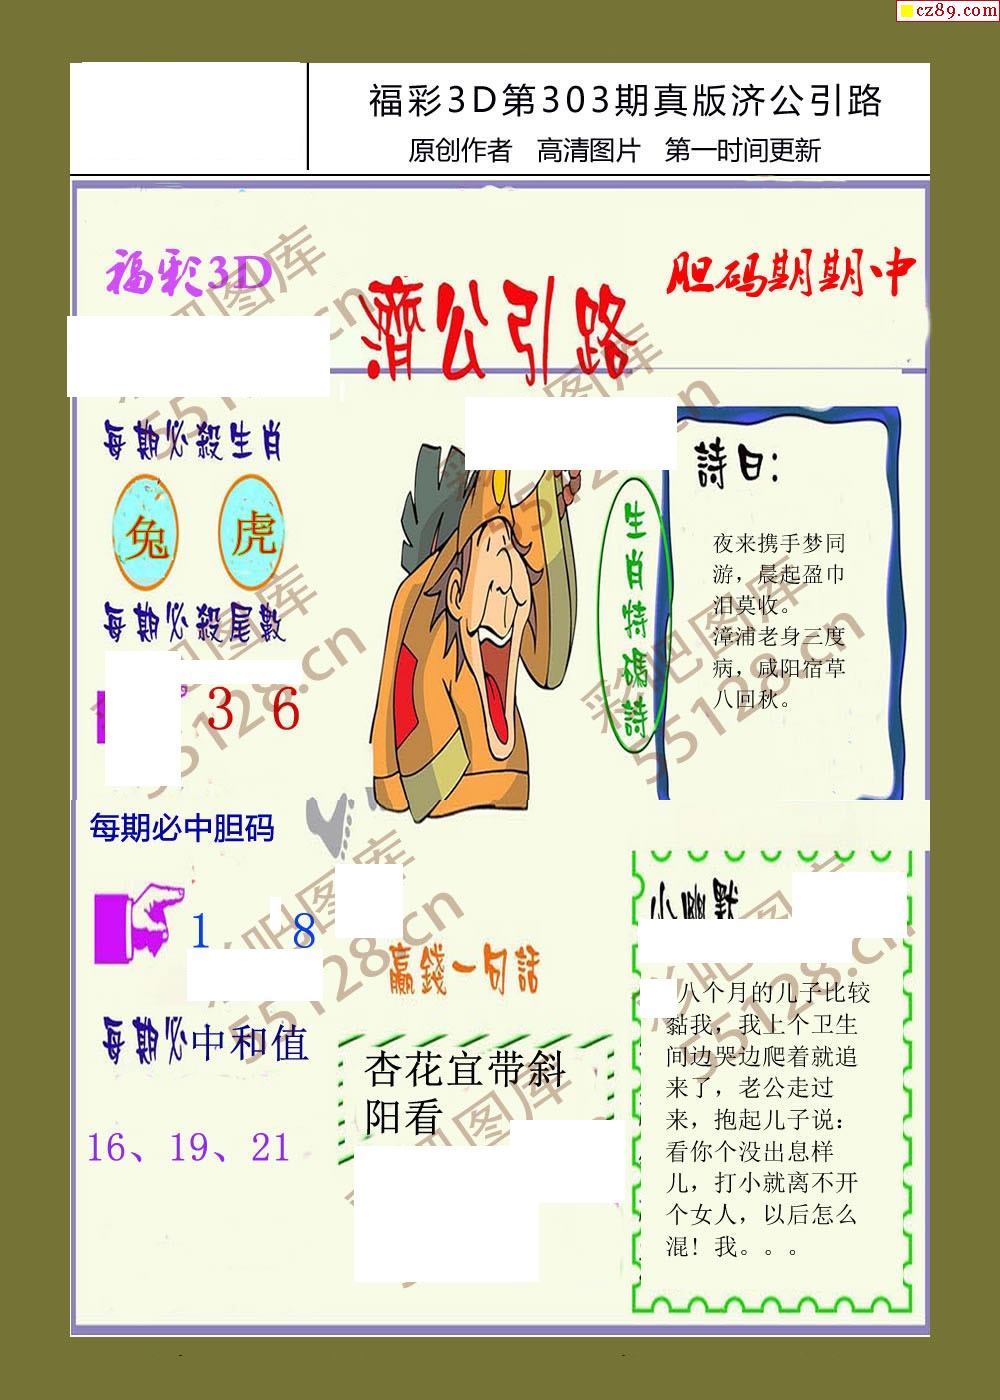 cz89.com
福彩3D第303期真版济公引路
原创作者 高清图片 第一时间更新
福彩3D
濟公引路
胆码期期中
每期必殺生肖
兔 虎
每期必殺尾數
3 6
每期必中胆码
1 8
每期必中和值
16、19、21
生肖特碼詩
詩曰:
夜来携手梦同
游，晨起盈巾
泪莫收。
漳浦老身三度
病，咸阳宿草
八回秋。
贏錢一句話
杏花宜带斜
阳看
小幽默
八个月的儿子比较
黏我，我上个卫生
间边哭边爬着就追
来了，老公走过
来，抱起儿子说：
看你个没出息样
儿，打小就离不开
个女人，以后怎么
混！我。。。
彩吧图库
55128.cn